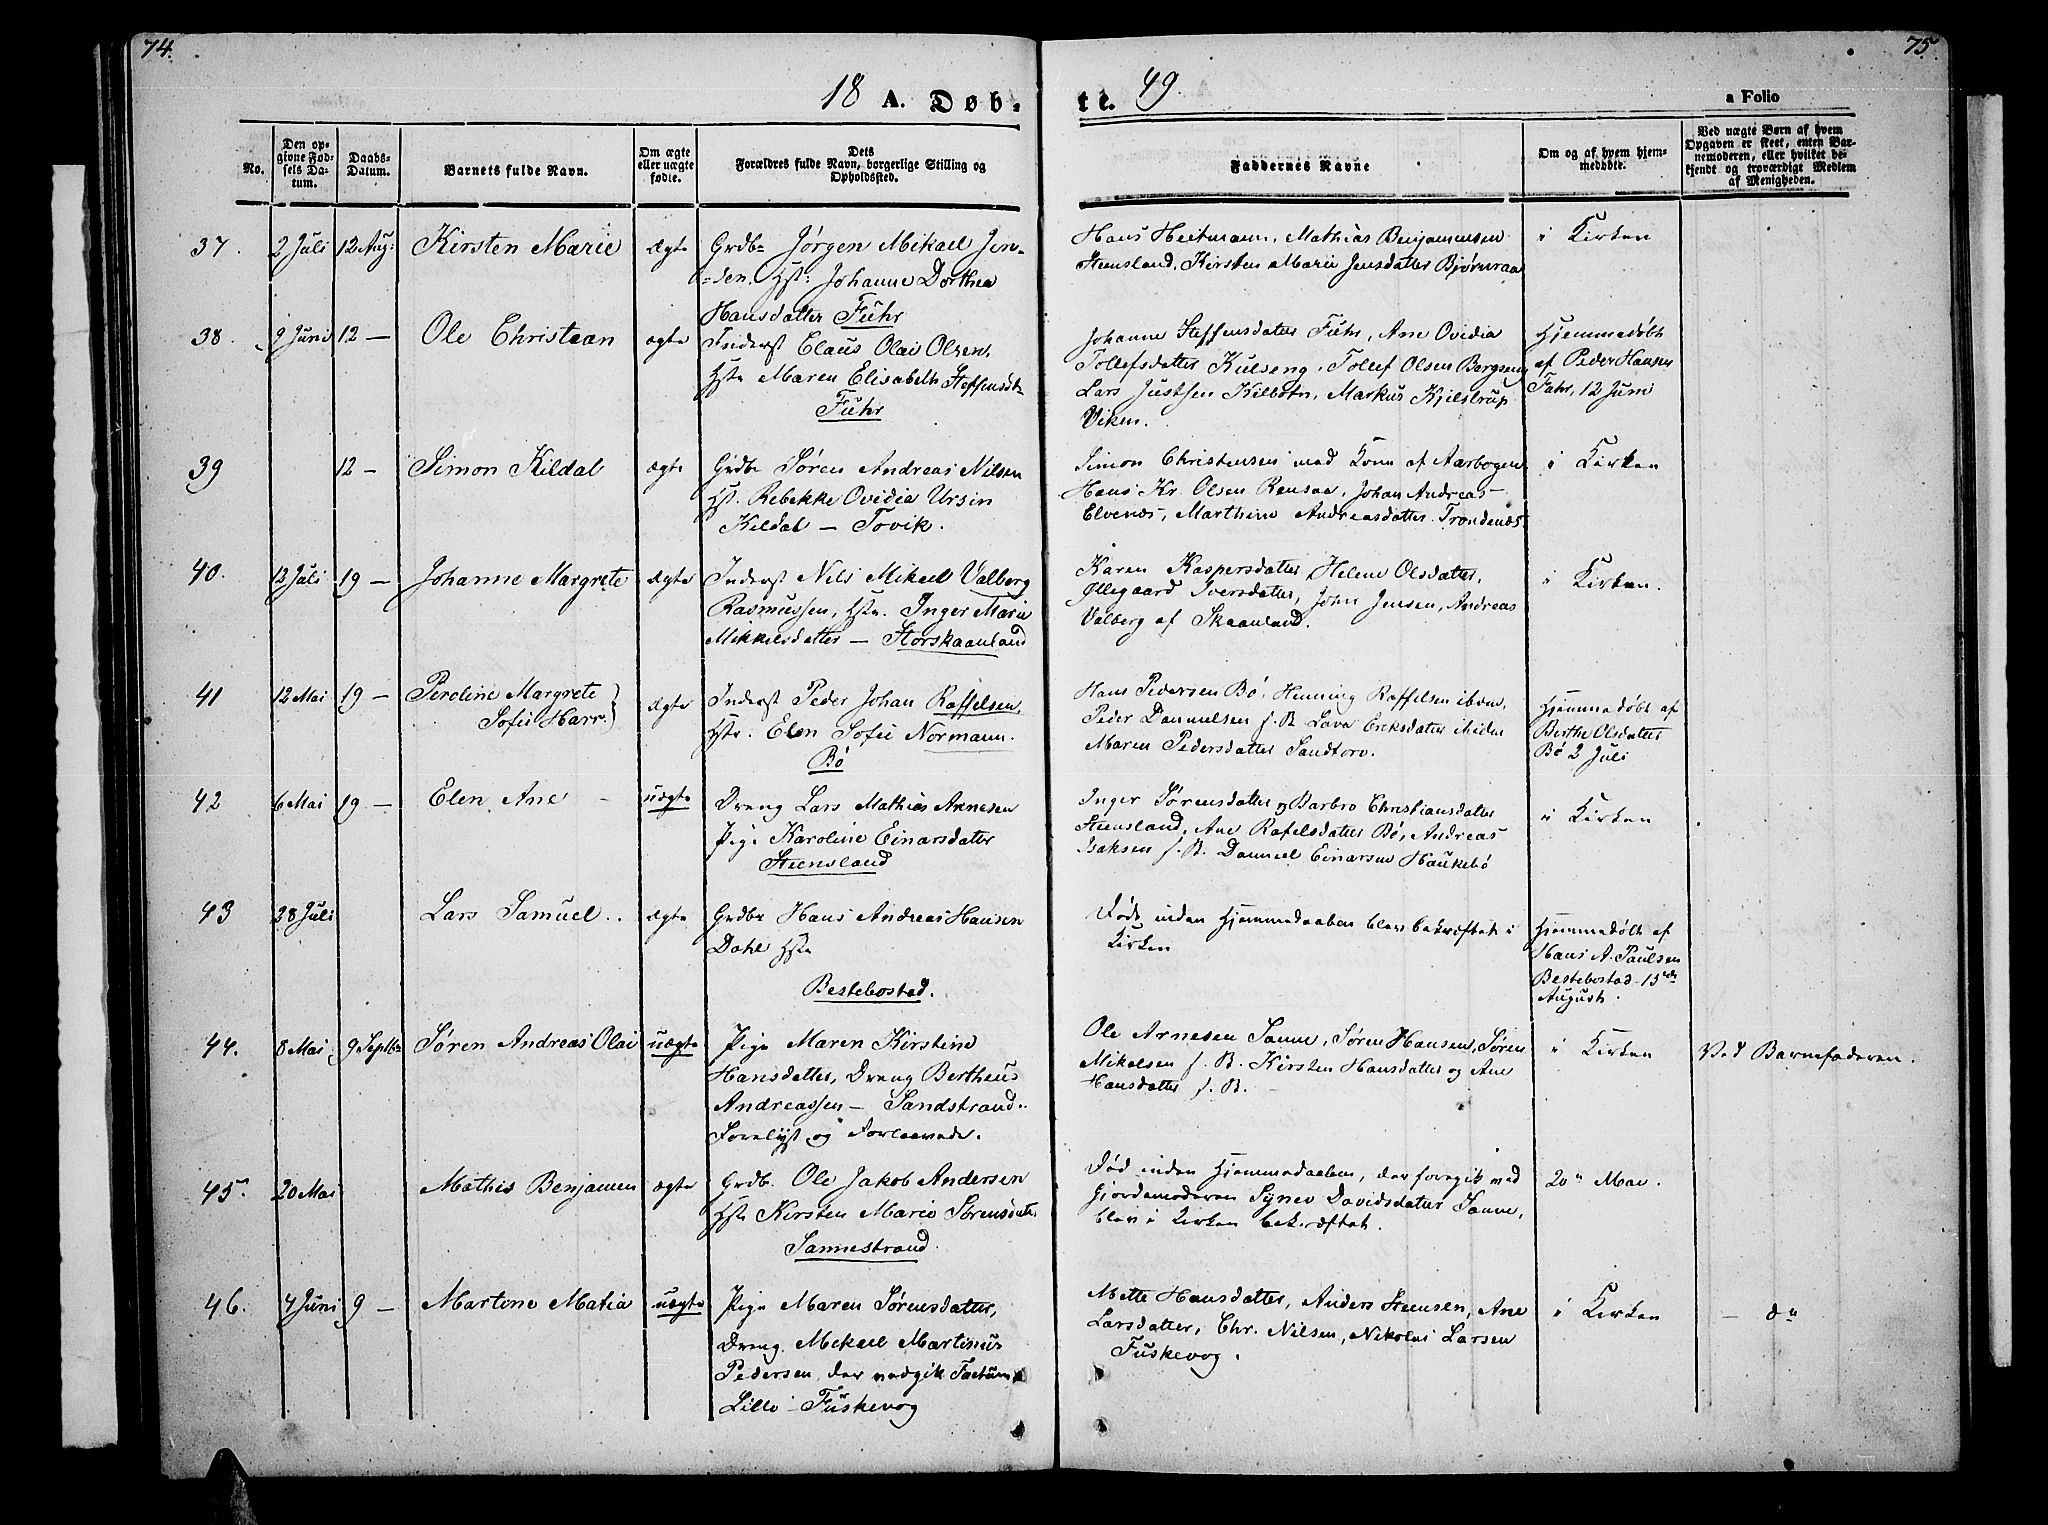 74.
75.
18 A. Døb-
te. 49.
a Folio
No.
Den op-
givne Fød-
sels Da-
tum.
Daabs-
Datum.
Barnets fulde Navn.
Om ægte
eller uægte
fødte.
Dets
Forældres fulde Navn, borgerlige Stilling og
Opholdssted.
Faddernes Navne
Om og af hvem hjem-
medøbte.
Ved uægte Børn af hvem
Opgaven er skeet, enten Bar-
nemoderen, eller hvilket be-
kjendt og troværdigt Medlem
af Menigheden.
37. 2 Juli 12 Aug: Kirsten Marie ægte Grdbr Jørgen Mikael Jen-
sen. Hst: Johanne Dorthea
Hansdatter Fuhr
Hans Heitmann, Mathias Benjaminsen
Steensland, Kirsten Marie Jensdatter Bjørnraa
i Kirken
38. 9 Juni 12 — Ole Christian ægte Inderst Elaus Olai Olsen,
Hstr Maren Elisabeth Steffensdtr
Fuhr
Johanne Steffensdatter Fuhr, Ane Ovidia
Tollefsdatter Kulseng, Tollef Olsen Bergseng
Lars Justsen Kilbotn, Markus Kjilstrup
Viken.
Hjemmedøbt
af Peder Hansen
Fuhr, 12 Juni
39 12 — Simon Kildal ægte Grdbr Søren Andreas Nilsen
Hst. Rebekke Ovidia Ursin
Kildal — Tovik.
Simon Christensen med Kone af Aarbogen
Hans Kr. Olsen Rensaa, Johan Andreas-
Elvenes, Marthine Andreasdatter Trondenæs
i Kirken
40. 12 Juli 19 — Johanne Margrete ægte Inderst Nils Mikael Valberg
Rasmussen, Hstr. Inger Marie
Mikkelsdatter — Storskaanland
Karen Kaspersdatter, Helene Olsdatter,
Øllegaard Iversdatter, John Jensen, Andreas
Valberg af Skaanland.
i Kirken.
41 12 Mai 19 — Peroline Margrete
Sofie Harr. ægte Inderst Peder Johan Raffelsen,
Hstr. Elen Sofie Normann.
Bø
Hans Pedersen Bø, Henning Raffelsen ibdm,
Peder Danielsen f. B. Lava Eriksdatter
Maren Pedersdatter Sandtorv.
Hjemmedøbt af
Berthe Olsdatter
Bø 2 Juli
42 6 Mai 19 — Elen Ane uægte Dreng Lars Mathias Arnesen
Pige Karoline Einarsdatter
Steensland
Inger Sørensdatter og Barbro Christiansdatter
Steensland, Ane Rafelsdatter Bø, Andreas
Isaksen f. B. Daniel Einarsen Haukebø
i Kirken
43 28 Juli Lars Samuel.. ægte Grdbr Hans Andreas Hansen
Dahl Hstr
Bestebostad.
Døde inden Hjemmedaaben blev bekræftet i
Kirken
Hjemmedøbt af
Hans A. Paulsen
Bestebostad 15de
August.
44. 8 Mai 9 Septbr Søren Andreas Olai uægte Pige Maren Kirstine
Hansdatter, Dreng Bertheus
Andreassen — Sandstrand..
Forelyst og Forlovede.
Ole Arnesen Sanne, Søren Hansen, Søren
Mikalsen f. B. Kirsten Hansdatter og Ane
Hansdatter f. B.
i Kirken
Ved Barnefaderen.
45. 20 Mai Mathis Benjamen ægte Grdb. Ole Jakob Andersen
Hstr Kirsten Marie Sørensdatter
Sannestrand.
Død inden Hjemmedaaben, der foregik med
Gjordemoderen Synev Davidsdatter Sanne,
blev i Kirken bekræftet.
20de Mai.
46. 4 Juni 9 — Martine Matia uægte Pige Maren Sørensdatter,
Dreng Mikael Martinus
Pedersen, der vedgik Factum
Lille-Fuskevog
Mette Hansdatter, Anders Steensen, Ane
Larsdatter, Chr. Nilsen, Nikolai Larsen
Fuskevog.
i Kirken
— do